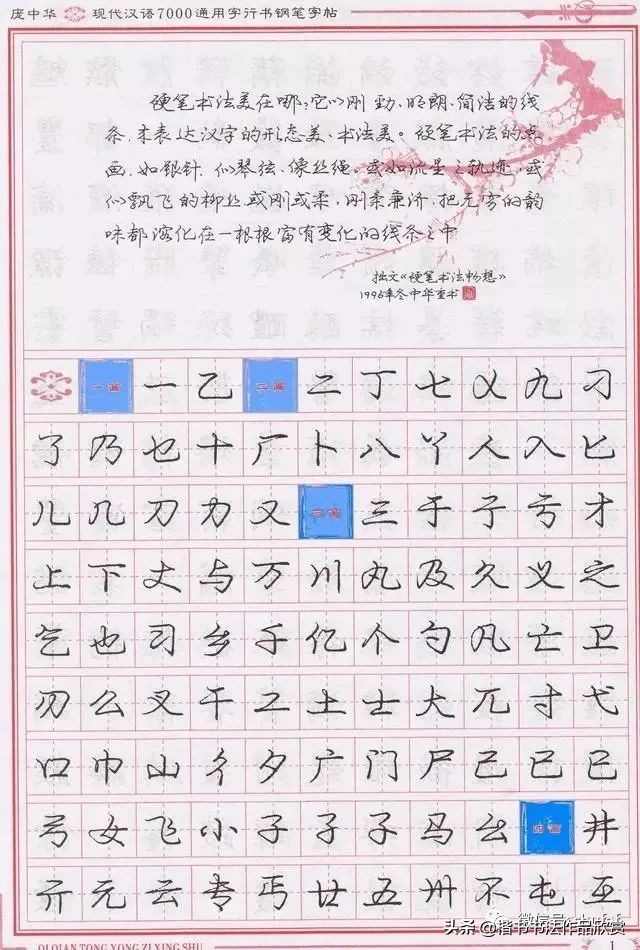 庞中华 现代汉语7000通用字行书钢笔字帖
硬笔书法美在哪?它以刚劲、明朗、简洁的线
条,来表达汉字的形态美、书法美。硬笔书法的点
画,如银针、似琴弦、像丝绳。或如流星之轨迹,或
似飘飞的柳丝,或刚或柔,刚柔兼济,把无穷的韵
味都溶化在一根根富有变化的线条之中
拙文《硬笔书法畅想》
1996年冬中华重书
一画 一 乙 二画 二 丁 七 乂 九 刁
了 乃 乜 十 厂 卜 八 丫 人 入 匕
儿 几 刀 力 又 三画 三 于 亍 亏 才
上 下 丈 与 万 川 丸 及 久 义 之
乞 也 习 乡 千 亿 个 勺 凡 亡 卫
刃 么 叉 干 工 土 士 大 兀 寸 弋
口 巾 山 彳 夕 广 门 尸 己 已 巳
弓 女 飞 小 子 孑 孓 马 幺 四画 井
亓 元 云 专 丐 廿 五 卅 不 屯 互
头条 @楷书书法作品欣赏
1
QI QIAN TONG YONG ZI XING SHU